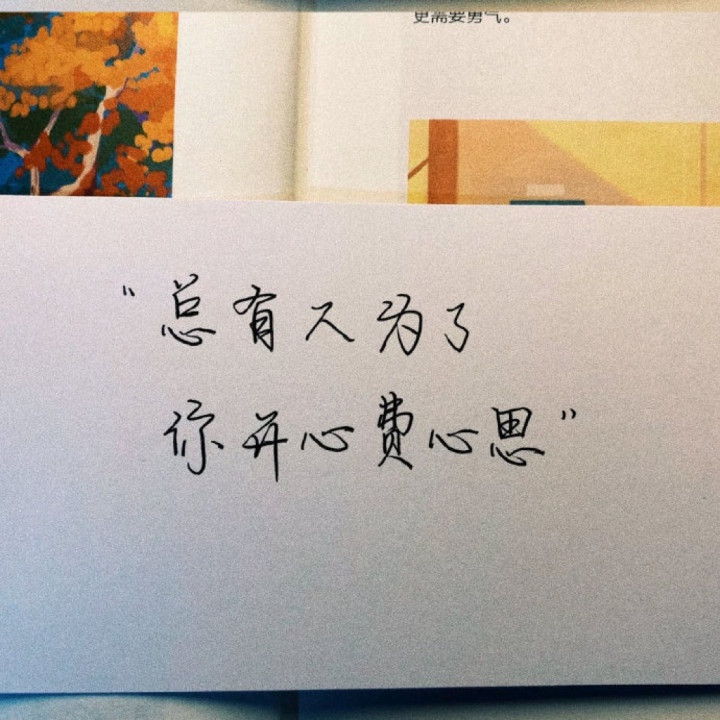 更需要勇气。
“总有人为了
你开心费心思”